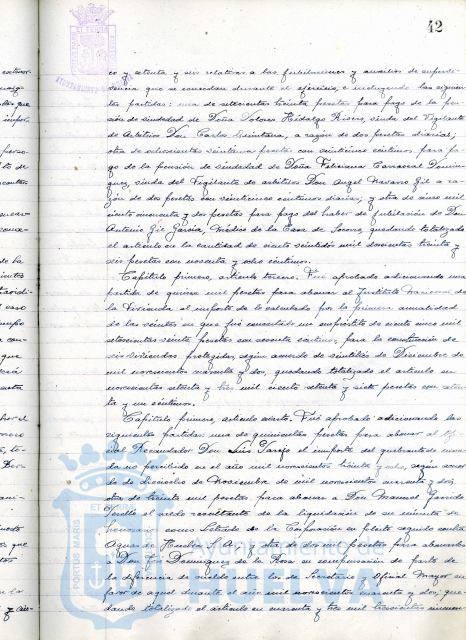 42
co y setenta y seis relativas a las jubilaciones y auxilios de supervi-
vencia que se concedan durante el ejercicio, e incluyendo las siguien-
tes partidas: una de setecientas treinta pesetas para pago de la pen-
sión de viudedad de Doña Dolores Hidalgo Rivero, viuda del Vigilante
de Arbitrios Don Carlos Quintana, a razón de dos pesetas diarias;
otra de ochocientas veintiuna pesetas con veinticinco céntimos para pa-
go de la pensión de viudedad de Doña Feliciana Carrascal Domín-
guez, viuda del Vigilante de arbitrios Don Angel Navarro Gil a ra-
zón de dos pesetas con veinticinco céntimos diarios; y otra de cinco mil
ciento cincuenta y dos pesetas para pago del haber de jubilación de Don
Antonio Gil García, Médico de la Casa de Socorro, quedando totalizado
el artículo en la cantidad de ciento veintidós mil doscientas treinta y
seis pesetas con noventa y ocho céntimos.
Capítulo primero, artículo tercero. Fué aprobado adicionando una
partida de quince mil pesetas para abonar al Instituto Nacional de
la Vivienda el importe de lo calculado por la primera anualidad
de las veinte en que fué concertado un empréstito de ciento cinco mil
setecientas veinte pesetas con sesenta céntimos, para la construcción de
seis viviendas protegidas, según acuerdo de veintiséis de Diciembre de
mil novecientos cuarenta y dos, quedando totalizado el artículo en
novecientas setenta y tres mil ciento setenta y siete pesetas con seten-
ta y un céntimos.
Capítulo primero, artículo cuarto. Fué aprobado adicionando las
siguientes partidas: una de quinientas pesetas para abonar al Ofi-
cial Recaudador Don Luis Parejo el importe del quebranto de mone-
da no percibido en el año mil novecientos treinta y ocho, según acuer-
do de dieciocho de Noviembre de mil novecientos cuarenta y dos;
otra de treinta mil pesetas para abonar a Don Manuel Garrido
Perelló el saldo resultante de la liquidación de su minuta de
honorarios como Letrado de la Corporación en pleito seguido contra
Aguas de Huelva S. A.; y otra de dos mil pesetas para abonarlas
a Don José Domínguez de la Rosa en compensación de parte de
la diferencia de sueldo entre los de Secretario y Oficial Mayor en
favor de aquel durante el año mil novecientos cuarenta y dos, que-
dando totalizado el artículo en cuarenta y tres mil trescientas cincuen-
Ayuntamiento de
HUELVA
PORTUS MARIS